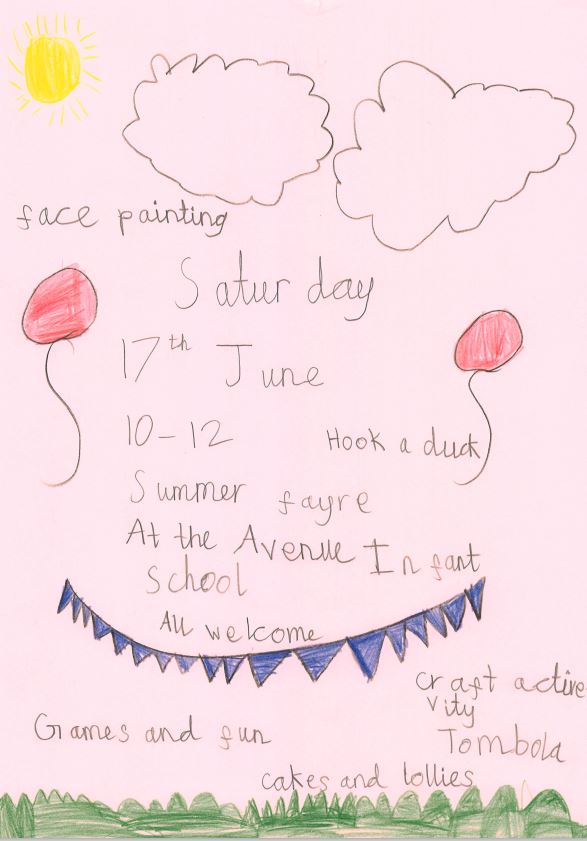 face painting
Saturday
17th June
10-12
Hook a duck
Summer fayre
At the Avenue Infant
School
All welcome
craft active
vity
Games and fun
Tombola
cakes and lollies